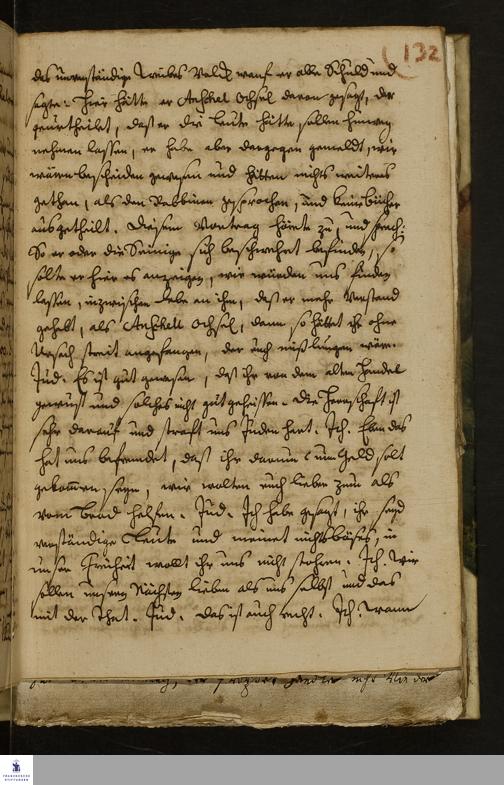 132
das unverständige
sagte: hier hätte er Anschel Ochsel davon gesagt, der
geurtheilet, daß er die Leute hätte sollen hinweg
nehmen lassen, er habe aber dargegen gemeldet, wir
wären bescheiden gewesen und hätten nichts weiters
gethan, als den Rabbinen gesprochen, und keine bücher
ausgetheilt. Diesem Vortrag hörete zu, und sprach:
So er oder die Seinige sich beschwehret befinden, so
solte er hier es anzeigen, wir würden uns finden
lassen, inzwischen lobe an ihm, daß er mehr Verstand
gehabt, als Anschell Ochsel, denn so hättet ihr ohne
Ursach streit angefangen, der euch mißlungen wäre.
Jud. Es ist gut gewesen, daß ihr von dem alten Handel
gewust und solches nicht gut geheissen. Die Herrschaft ist
sehr darauf und straft uns Juden hart. Ich. Eben das
hat uns befremdet, daß ihr darum um Geld solt
gekommen seyn, wir wolten euch lieber zum als
vom brod helfen. Jud. Ich habe gesagt, ihr seyd
verständige Leute und meinet nichts böses, in
unser Freiheit wollt ihr uns nicht stehren. Ich. Wir
sollen unsern Nächsten lieben als uns selbst und das
mit der That. Jud. das ist auch recht. Ich.
FRANCKESCHE STIFTUNGEN